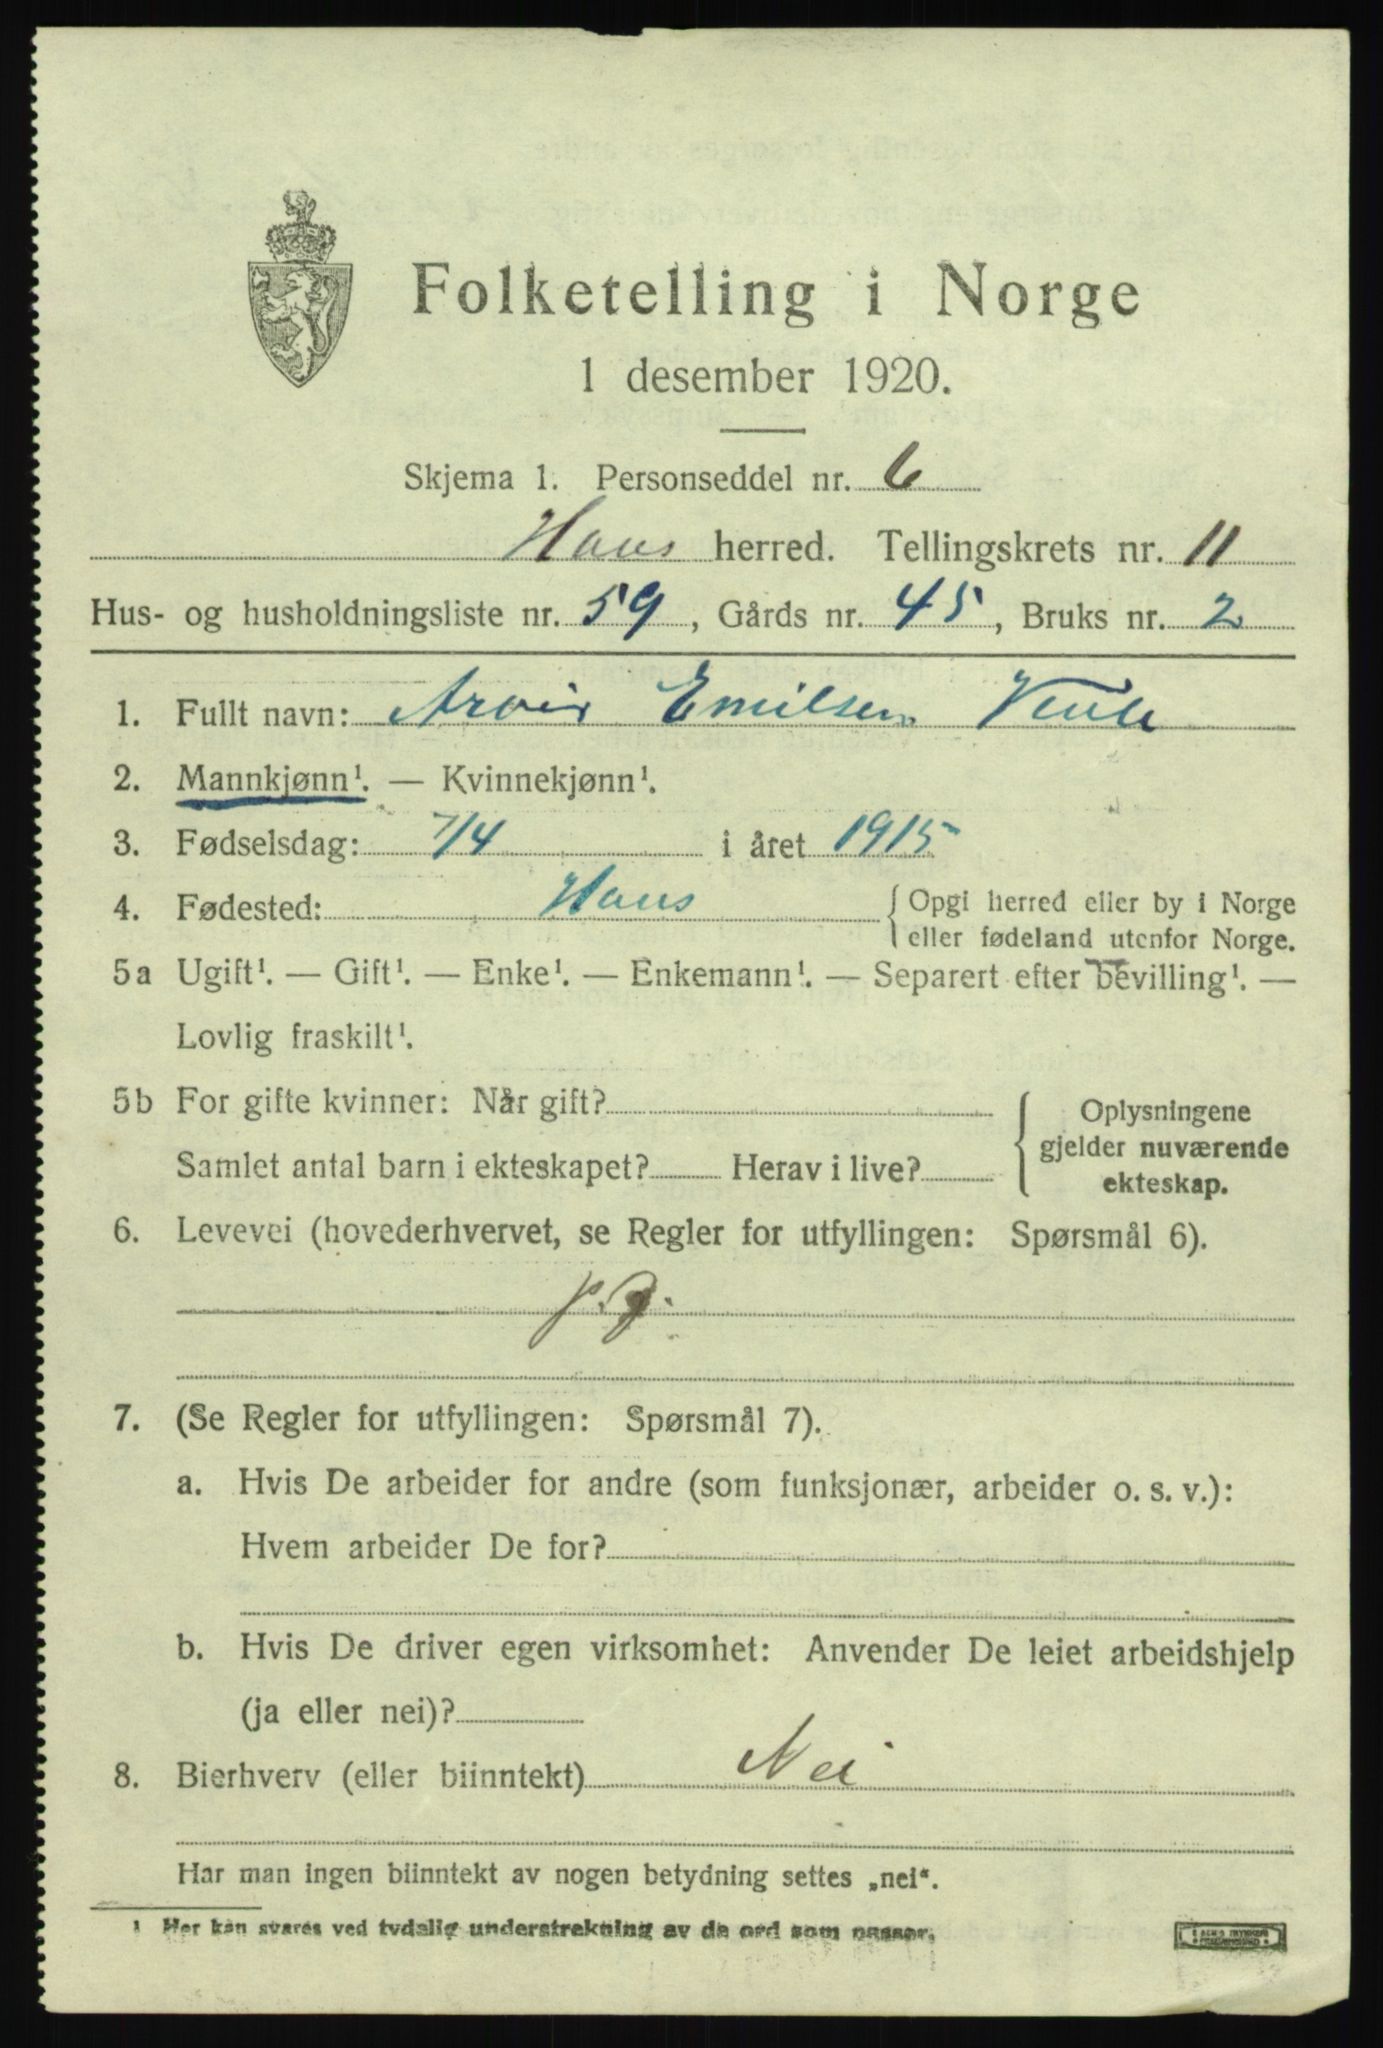 Folketelling i Norge
1 desember 1920.
Skjema 1. Personseddel nr. 6
Haus herred. Tellingskrets nr. 11
Hus- og husholdningsliste nr. 59, Gårds nr. 45, Bruks nr. 2
1. Fullt navn: Arvid Emilsen
2. Mannkjønn¹. — Kvinnekjønn¹.
3. Fødselsdag: 7/4 i året 1915
4. Fødested: Haus { Opgi herred eller by i Norge
eller fødeland utenfor Norge.
5a Ugift¹. — Gift¹. — Enke¹. — Enkemann¹. — Separert efter bevilling¹. —
Lovlig fraskilt¹.
5b For gifte kvinner: Når gift?
Samlet antal barn i ekteskapet? Herav i live?
{ Oplysningene
gjelder nuværende
ekteskap.
6. Levevei (hovederhvervet, se Regler for utfyllingen: Spørsmål 6).
p.g.
7. (Se Regler for utfyllingen: Spørsmål 7).
a. Hvis De arbeider for andre (som funksjonær, arbeider o. s. v.):
Hvem arbeider De for?
b. Hvis De driver egen virksomhet: Anvender De leiet arbeidshjelp
(ja eller nei)?
8. Bierhverv (eller biinntekt) Nei
Har man ingen biinntekt av nogen betydning settes „nei“.
¹ Her kan svares ved tydelig understrekning av de ord som passer.